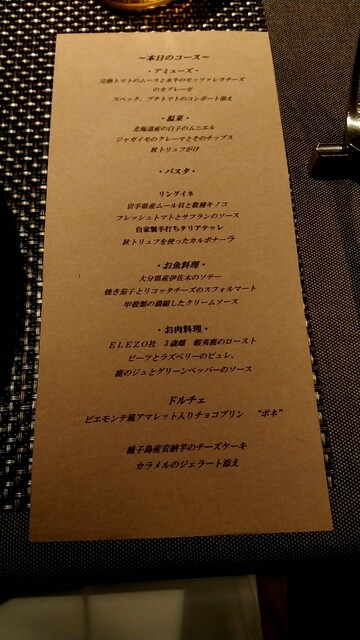 ～本日のコース～
・アミューズ・
完熟トマトのムースと水牛のモッツァレラチーズ
のカプレーゼ
スペック、プチトマトのコンポート添え
・温菜・
北海道産の白子のムニエル
ジャガイモのクレーマとそのチップス
秋トリュフがけ
・パスタ・
リングイネ
岩手県産ムール貝と数種キノコ
フレッシュトマトとサフランのソース
自家製手打ちタリアテッレ
秋トリュフを使ったカルボナーラ
・お魚料理・
大分県産伊佐木のソテー
焼き茄子とリコッタチーズのスフォルマート
甲殻類の濃縮したクリームソース
・お肉料理・
ＥＬＥＺＯ社　３歳雌　蝦夷鹿のロースト
ビーツとラズベリーのピュレ、
鹿のジュとグリーンペッパーのソース
ドルチェ
ピエモンテ風アマレット入りチョコプリン　“ボネ”
種子島産安納芋のチーズケーキ
カラメルのジェラート添え